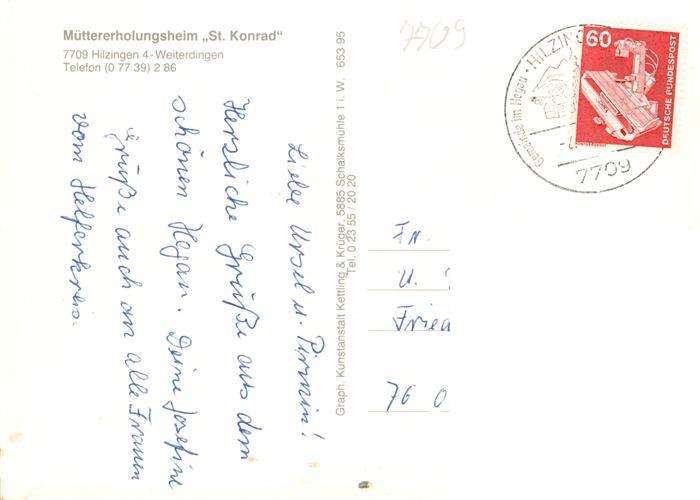 Müttererholungsheim „St. Konrad“
7709 Hilzingen 4-Weiterdingen
Telefon (0 77 39) 2 86
Liebe Ursel u. Pirmin!
Herzliche Grüße aus dem
schönen Hegau. Deine Josefine
Grüße auch an alle Frauen
vom Helferkreis.
Graph. Kunstanstalt Kettling & Krüger, 5885 Schalksmühle 1 i. W. 653 95
Tel. 0 23 55 / 20 20
7709
Gemeinde im Hegau · HILZING
7709
60
DEUTSCHE BUNDESPOST
Fr.
u.
Fried
76 0